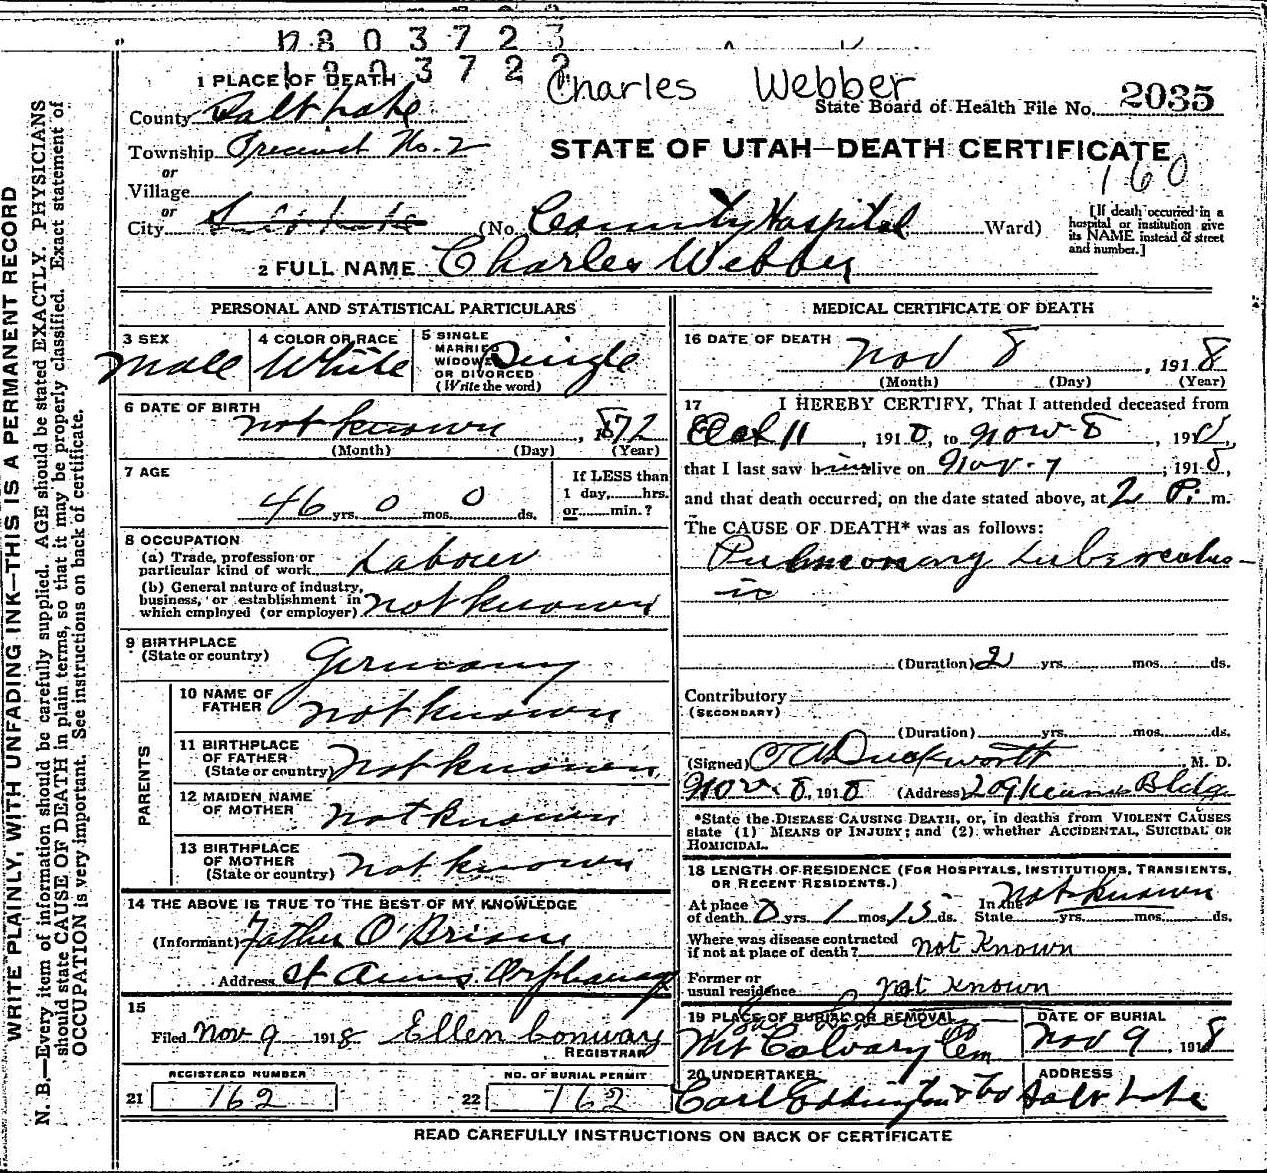 1803723
180372
Charles Webber
1 PLACE OF DEATH
State Board of Health File No. 2035
County Salt Lake
Township Precinct No. 2
STATE OF UTAH—DEATH CERTIFICATE
160
or
Village
or
City Salt Lake (No. County Hospital Ward)
[If death occurred in a hospital or institution give its NAME instead of street and number.]
2 FULL NAME Charles Webber
PERSONAL AND STATISTICAL PARTICULARS
3 SEX
Male
4 COLOR OR RACE
White
5 SINGLE
MARRIED
WIDOWED
OR DIVORCED
(Write the word)
Single
6 DATE OF BIRTH
not known, 1872
(Month) (Day) (Year)
7 AGE
46 yrs. 0 mos. 0 ds.
If LESS than
1 day,......hrs.
or......min.?
8 OCCUPATION
(a) Trade, profession or
particular kind of work Labour
(b) General nature of industry,
business, or establishment in
which employed (or employer) not known
9 BIRTHPLACE
(State or country) Germany
PARENTS
10 NAME OF
FATHER not known
11 BIRTHPLACE
OF FATHER
(State or country) Not known
12 MAIDEN NAME
OF MOTHER not known
13 BIRTHPLACE
OF MOTHER
(State or country) not known
14 THE ABOVE IS TRUE TO THE BEST OF MY KNOWLEDGE
(Informant) Father O'Brien
Address St Anns Orphanage
15
Filed Nov 9 1918 Ellen Conway
REGISTRAR
REGISTERED NUMBER
21 162
NO. OF BURIAL PERMIT
22 762
MEDICAL CERTIFICATE OF DEATH
16 DATE OF DEATH
Nov 8, 1918
(Month) (Day) (Year)
17 I HEREBY CERTIFY, That I attended deceased from
11, 1918, to Nov 8, 1918,
that I last saw him alive on Nov. 7, 1918,
and that death occurred, on the date stated above, at 2 P. m.
The CAUSE OF DEATH* was as follows:
Pulmonary Tuberculos-
is
(Duration) 2 yrs. mos. ds.
Contributory
(SECONDARY)
(Duration) yrs. mos. ds.
(Signed) Duckworth, M. D.
Nov. 8, 1918 (Address) 209 Kearns Bldg
*State the DISEASE CAUSING DEATH, or, in deaths from VIOLENT CAUSES
state (1) MEANS OF INJURY; and (2) whether ACCIDENTAL, SUICIDAL OR
HOMICIDAL.
18 LENGTH OF RESIDENCE (FOR HOSPITALS, INSTITUTIONS, TRANSIENTS,
OR RECENT RESIDENTS.)
At place
of death 0 yrs. 1 mos. 15 ds. In the State not known yrs. mos. ds.
Where was disease contracted
if not at place of death? not known
Former or
usual residence not known
19 PLACE OF BURIAL OR REMOVAL
Mt Calvary Cem
DATE OF BURIAL
Nov 9, 1918
20 UNDERTAKER
Carl Eddington & Co
ADDRESS
Salt Lake
READ CAREFULLY INSTRUCTIONS ON BACK OF CERTIFICATE
WRITE PLAINLY, WITH UNFADING INK—THIS IS A PERMANENT RECORD
N. B.—Every item of information should be carefully supplied. AGE should be stated EXACTLY. PHYSICIANS
should state CAUSE OF DEATH in plain terms, so that it may be properly classified. Exact statement of
OCCUPATION is very important. See instructions on back of certificate.